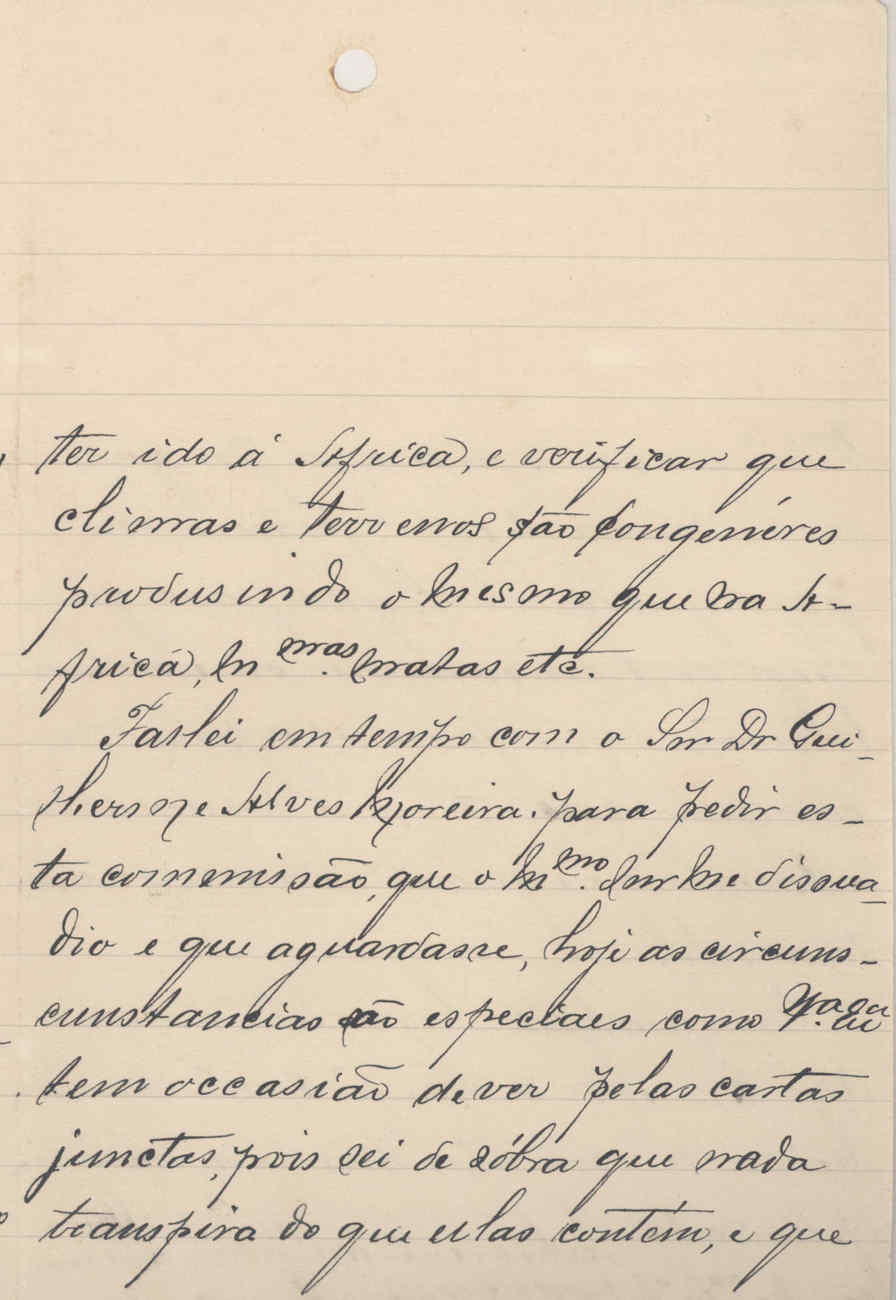 ter ido á Africa, e verificar que
climas e terrenos são congenéres
produsindo o mesmo que na A-
fricá, nas matas etc.
Fallei em tempo com o Snr Dr Gui-
lherme Alves Moreira. para pedir es-
ta commissão, que o m.mo Snr me dissua-
dio e que aguardasse, hoje as circuns-
cunstancias são especiaes como V.a
tem occasião de ver pelas cartas
junctas, pois sei de sóbra que nada
transpira do que ellas contém, e que